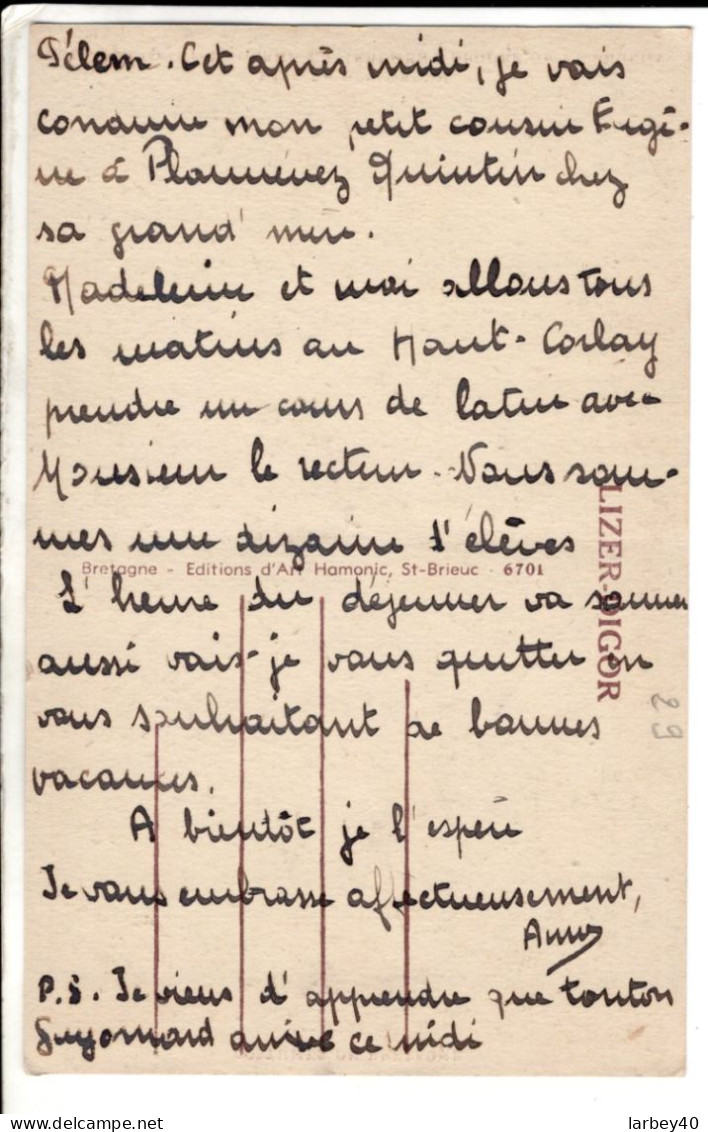 Pélem. Cet après midi, je vais
conduire mon petit cousin Eugè-
ne à Plounévez Quintin chez
sa grand'mère.
Madeleine et moi allons tous
les matins au Haut-Corlay
prendre un cours de latin avec
Monsieur le recteur. Nous som-
mes une dizaine d'élèves
Bretagne - Editions d'Art Hamonic, St-Brieuc - 6701
L'heure du déjeuner va sonner
aussi vais-je vous quitter en
vous souhaitant de bonnes
vacances.
A bientôt je l'espère
Je vous embrasse affectueusement,
Anne
P.S. Je viens d'apprendre que tonton
Guyomard arrive ce midi
LIZER-DIGOR
29
larbey40